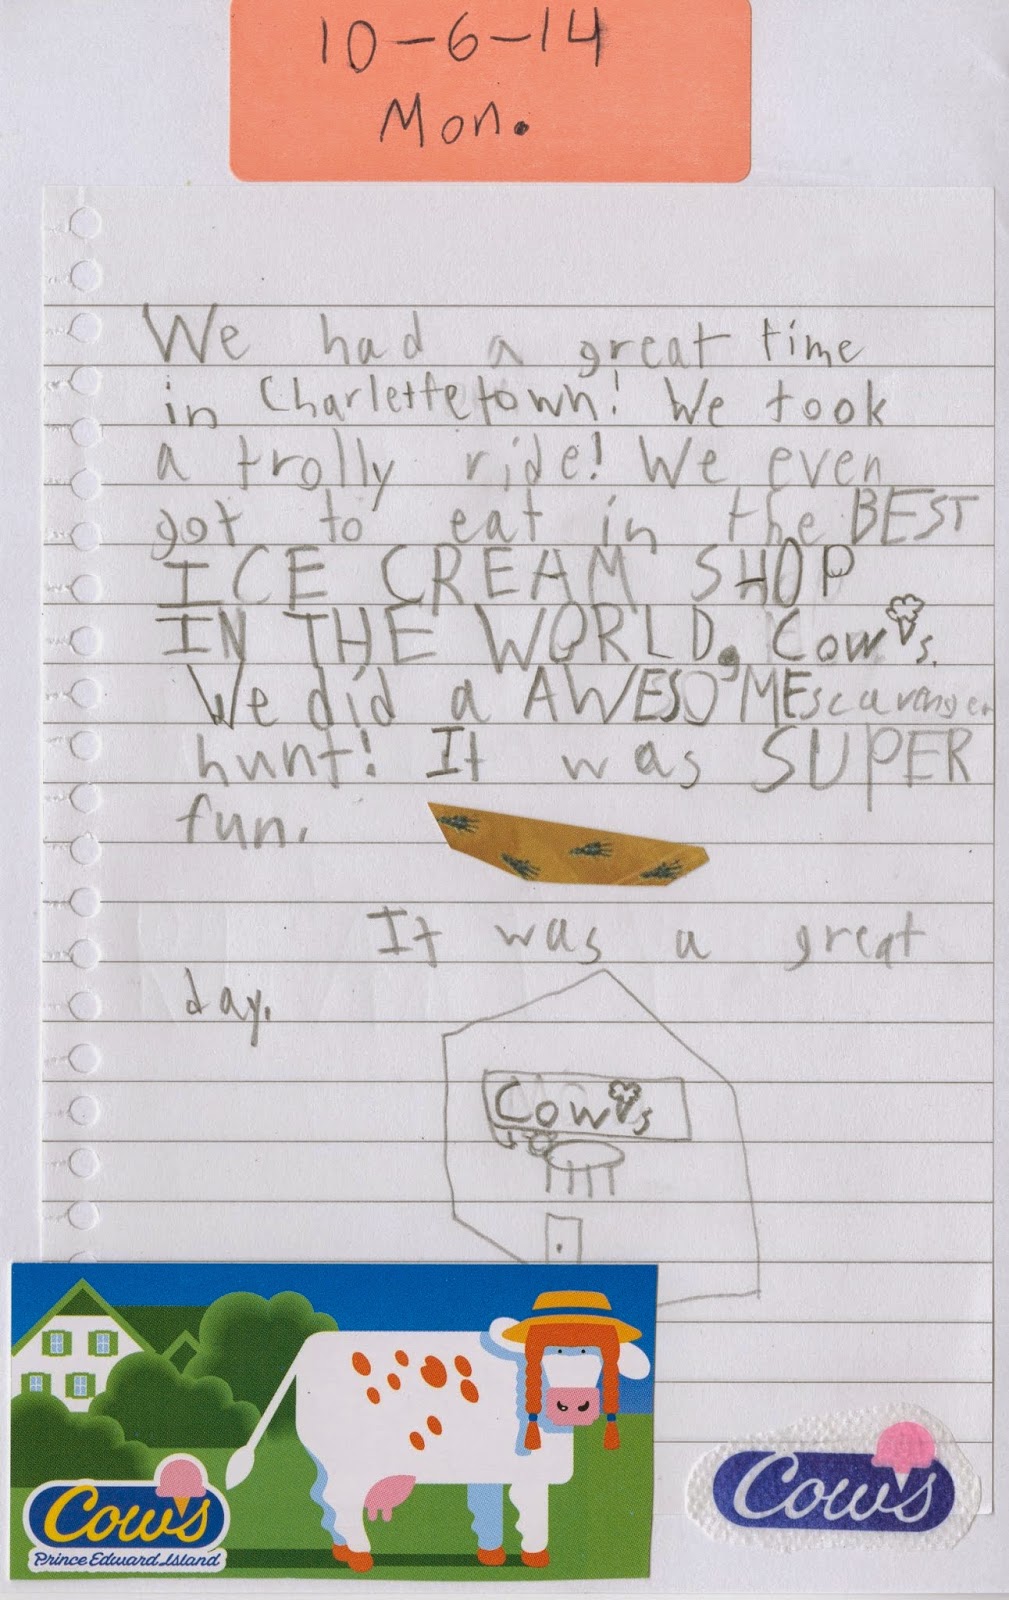 10-6-14
Mon.
We had a great time
in Charlettetown! We took
a trolly ride! We even
got to eat in the BEST
ICE CREAM SHOP
IN THE WORLD, Cow's.
We did a AWESOME scavenger
hunt! It was SUPER
fun.
It was a great
day.
Cow's
Cow's
Prince Edward Island
Cow's